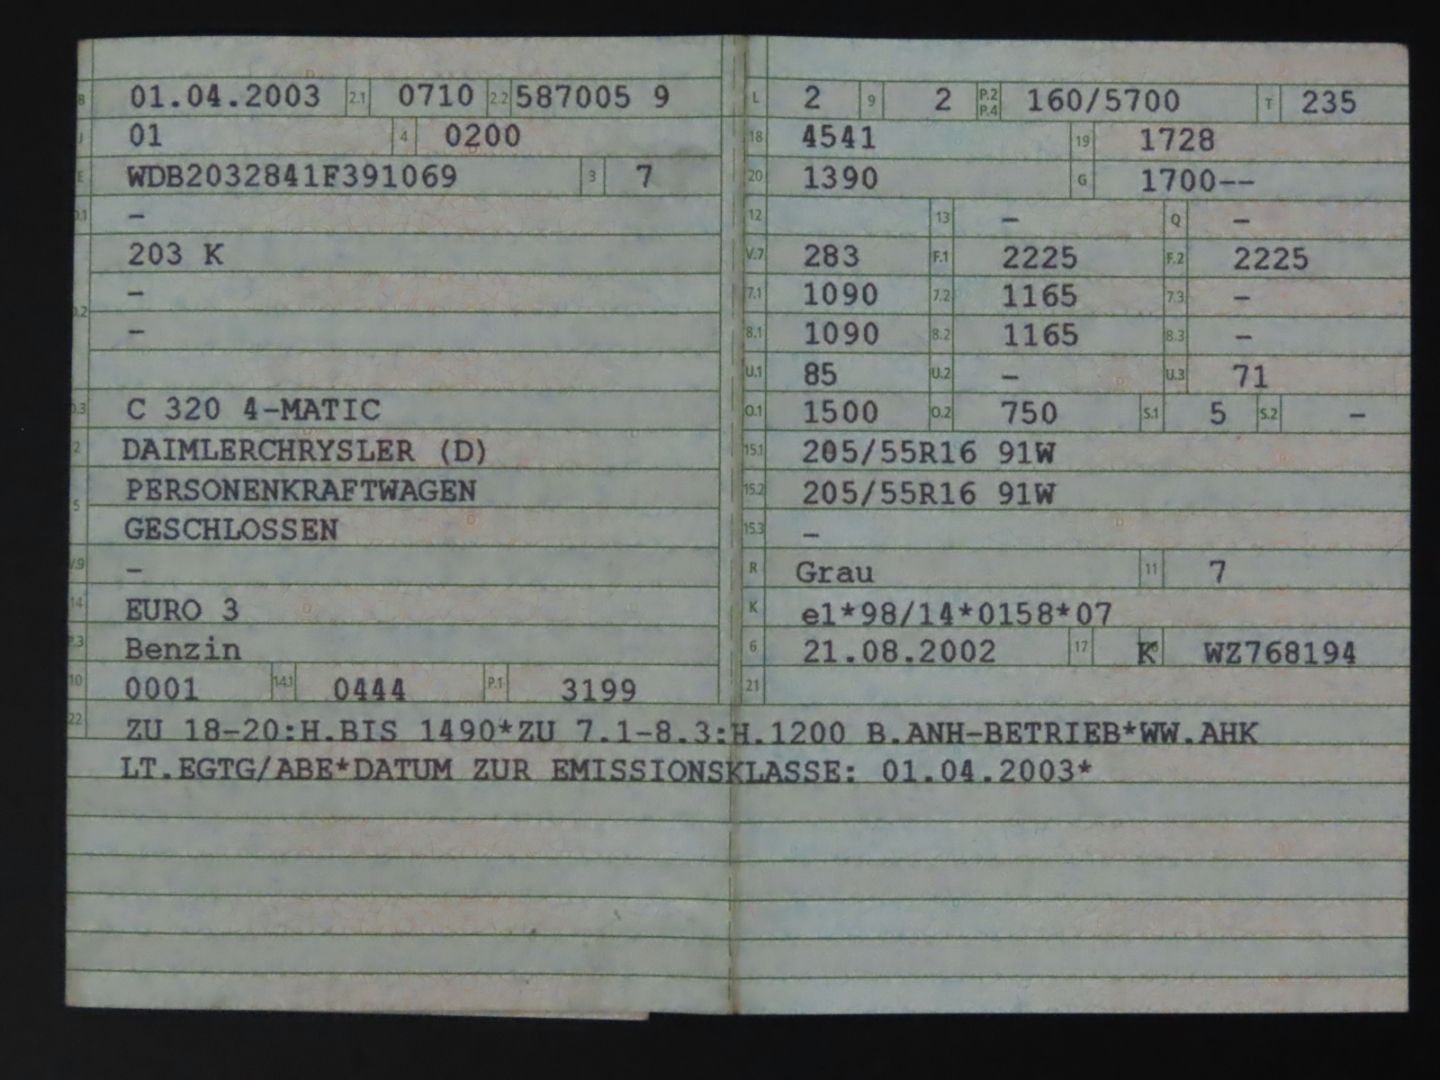 B 01.04.2003 2.1 0710 2.2 587005 9
J 01 4 0200
E WDB2032841F391069 3 7
D.1 –
203 K
–
D.2 –
D.3 C 320 4-MATIC
2 DAIMLERCHRYSLER (D)
PERSONENKRAFTWAGEN
5 GESCHLOSSEN
V.9 –
14 EURO 3
P.3 Benzin
10 0001 14.1 0444 P.1 3199
L 2 9 2 P.2 P.4 160/5700 T 235
18 4541 19 1728
20 1390 G 1700--
12 13 – Q –
V.7 283 F.1 2225 F.2 2225
7.1 1090 7.2 1165 7.3 –
8.1 1090 8.2 1165 8.3 –
U.1 85 U.2 – U.3 71
O.1 1500 O.2 750 S.1 5 S.2 –
15.1 205/55R16 91W
15.2 205/55R16 91W
15.3 –
R Grau 11 7
K e1*98/14*0158*07
6 21.08.2002 17 K WZ768194
21
22 ZU 18-20:H.BIS 1490*ZU 7.1-8.3:H.1200 B.ANH-BETRIEB*WW.AHK
LT.EGTG/ABE*DATUM ZUR EMISSIONSKLASSE: 01.04.2003*